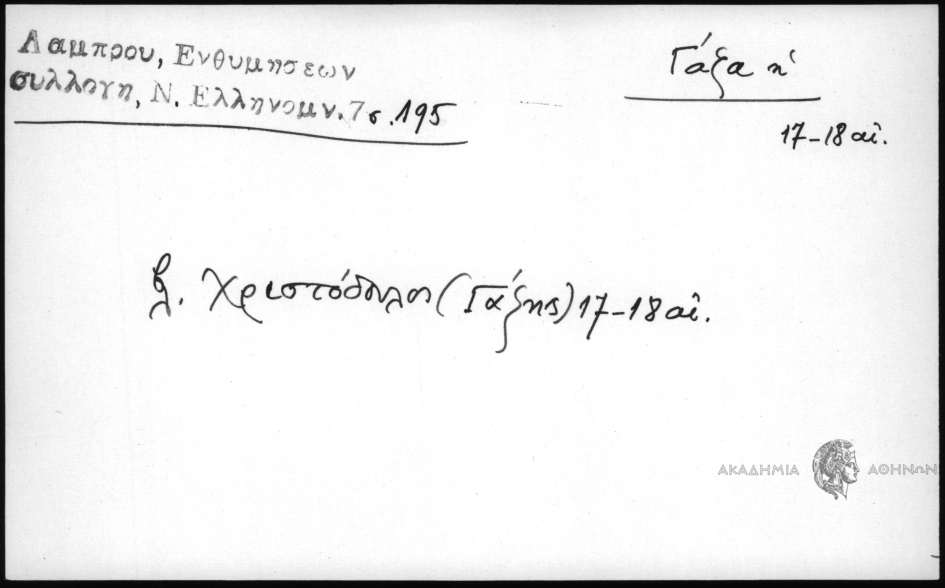 Λαμπρου, Ενθυμησεων
συλλογη, Ν. Ελληνομν. 7 σ. 195
Γάζα ἡ
17-18 αἰ.
βλ. Χριστόδουλος (Γάζης) 17-18 αἰ.
ΑΚΑΔΗΜΙΑ ΑΘΗΝΩΝ